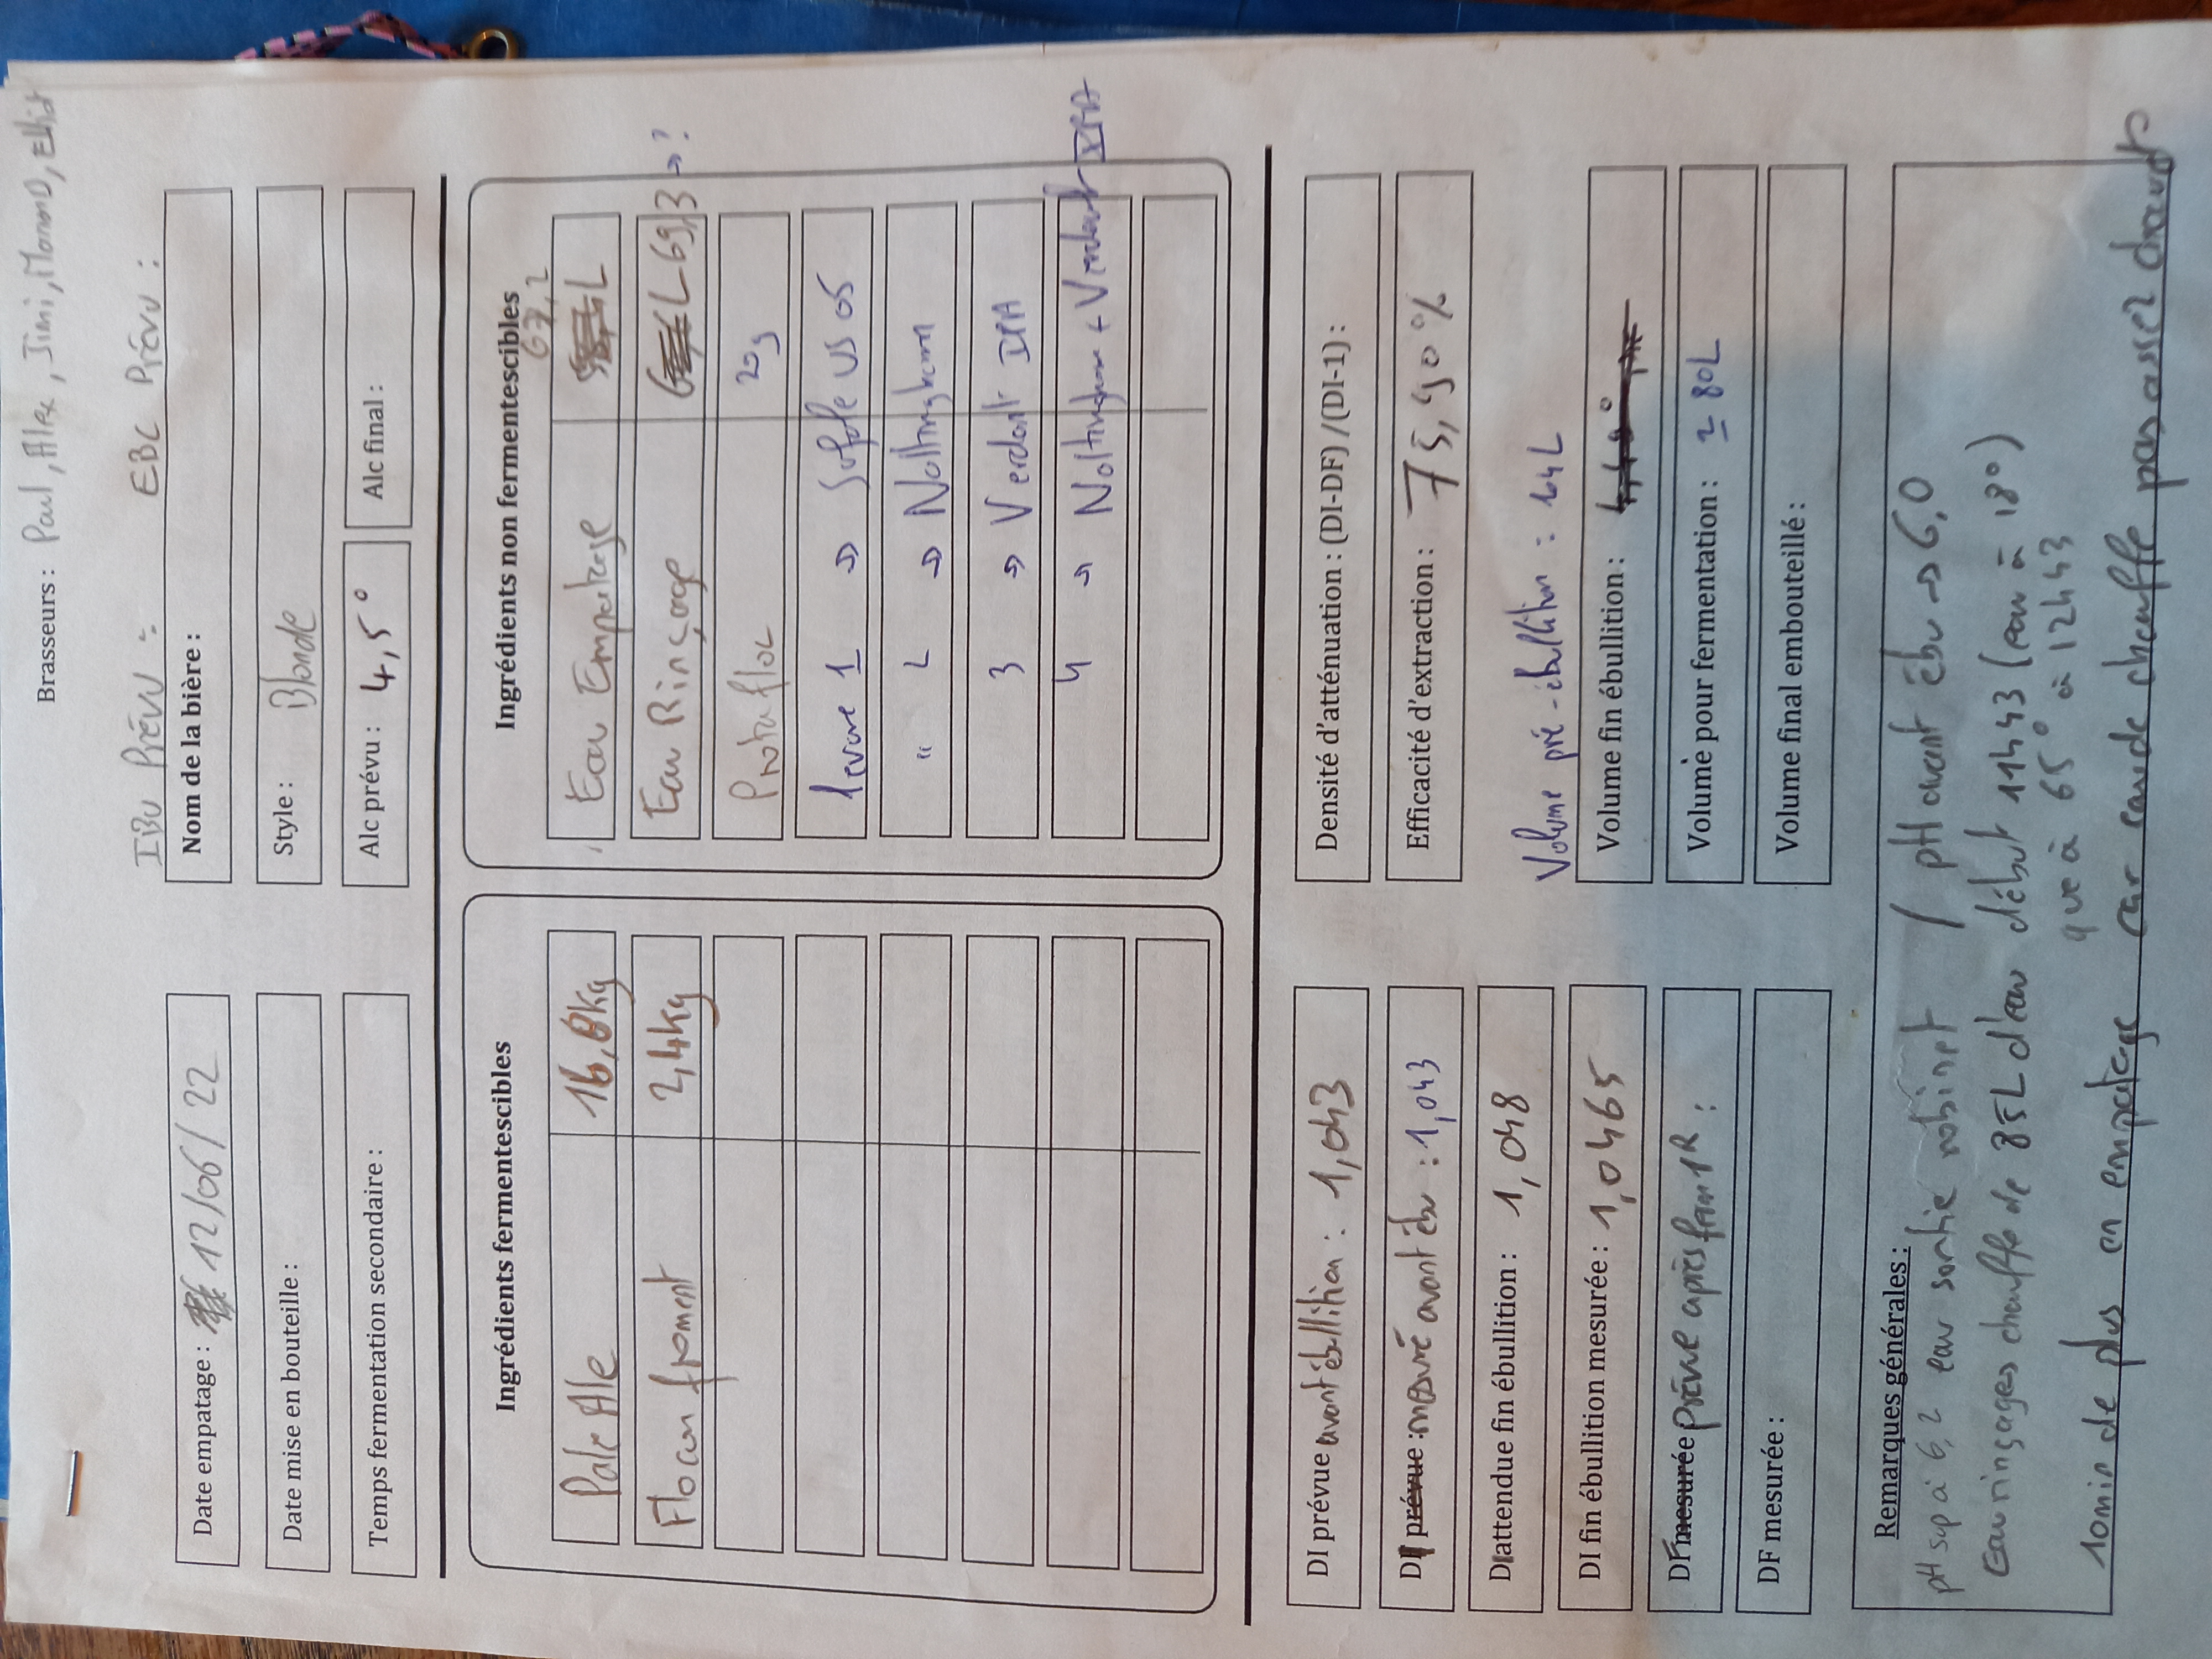 Brasseurs : Paul, Alex, Jimi, ManonD, Elliot
IBU Prévu : EBC Prévu :
Date empatage : 12/06/22
Nom de la bière :
Date mise en bouteille :
Style : Blonde
Temps fermentation secondaire :
Alc prévu : 4,5°
Alc final :
Ingrédients fermentescibles
Pale Ale 16,8kg
Flocon froment 2,4kg
Ingrédients non fermentescibles
67,2
Eau Empatage L
Eau Rinçage L 69,3 → ?
Protafloc 20g
levure 1 ⇒ Safale US 05
" 2 ⇒ Nottingham
3 ⇒ Verdant IPA
4 ⇒ Nottingham + Verdant IPA
DI prévue avant ébullition : 1,043
DI prévue : mesuré avant ébu : 1,043
DI attendue fin ébullition : 1,048
DI fin ébullition mesurée : 1,0465
DF mesurée prévue après ferm 1R :
DF mesurée :
Densité d'atténuation : (DI-DF) /(DI-1) :
Efficacité d'extraction : 75,90%
Volume pré-ébullition : 104L
Volume fin ébullition :
Volume pour fermentation : ≃ 80L
Volume final embouteillé :
Remarques générales :
pH sup à 6,2 eau sortie robinet / pH avant ébu ⇒ 6,0
Eau rinçages chauffe de 85L d'eau début 11h43 (eau à 18°)
que à 65° à 12h43
10min de plus en empatage car eau de chauffe pas assez chaude